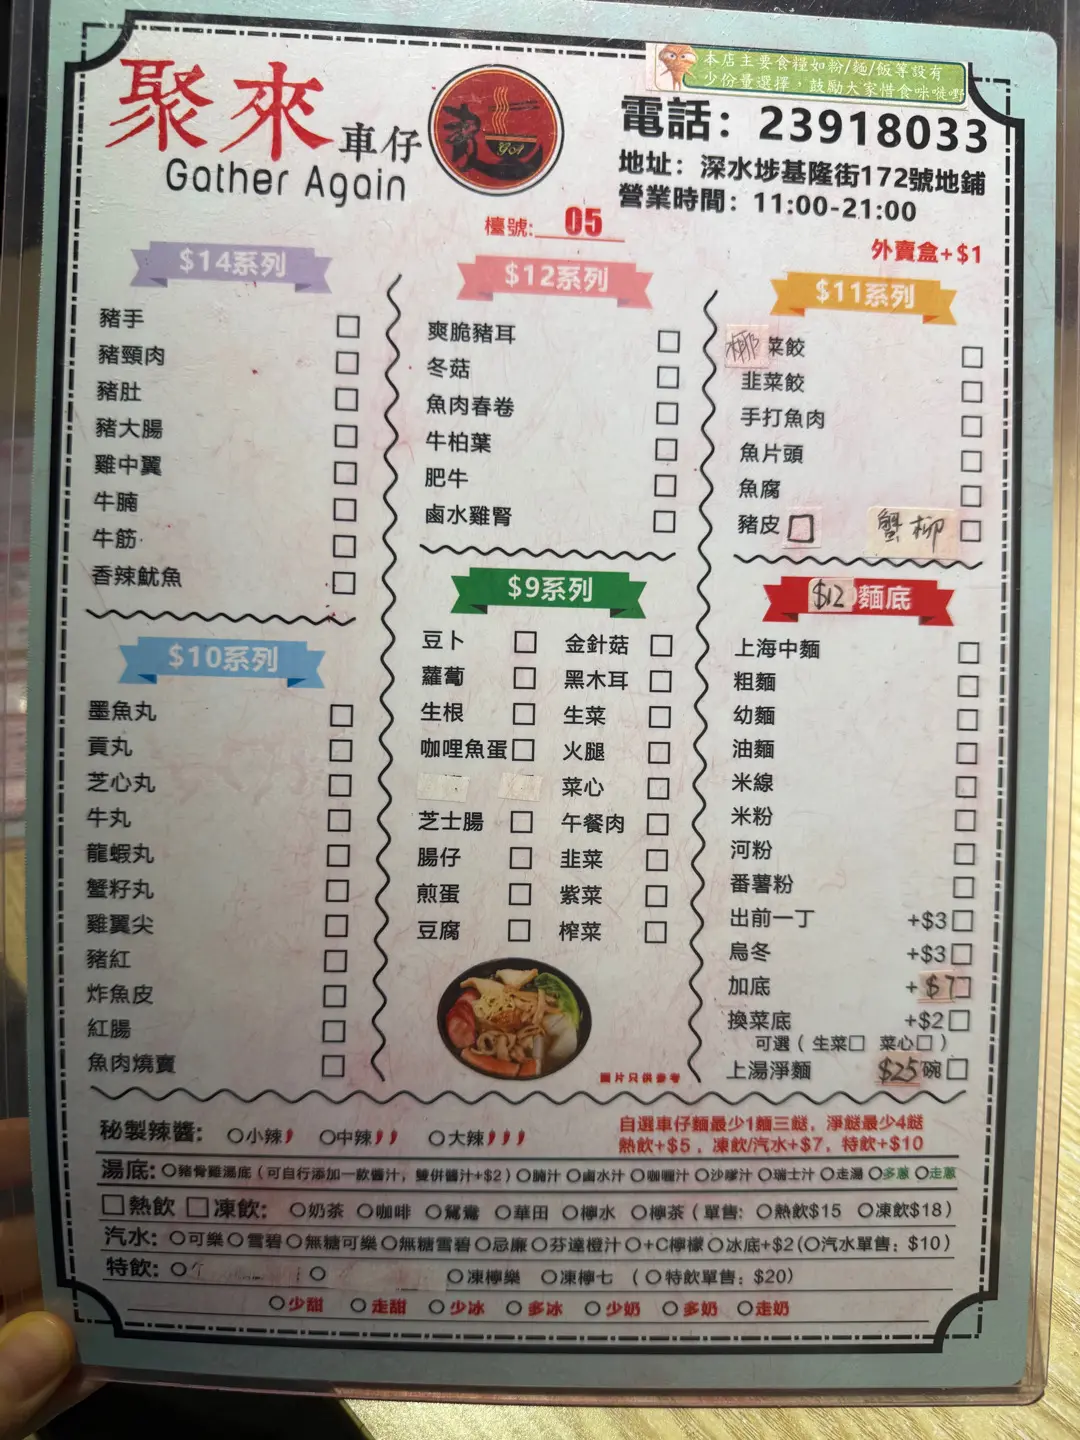 聚來車仔
Gather Again
本店主要食糧如粉/麵/飯等設有
少份量選擇，鼓勵大家惜食咪嘥嘢
電話：23918033
地址：深水埗基隆街172號地鋪
營業時間：11:00-21:00
檯號: 05
外賣盒+$1
$14系列
豬手 □
豬頸肉 □
豬肚 □
豬大腸 □
雞中翼 □
牛腩 □
牛筋 □
香辣魷魚 □
$12系列
爽脆豬耳 □
冬菇 □
魚肉春卷 □
牛柏葉 □
肥牛 □
鹵水雞腎 □
$11系列
椰菜餃 □
韭菜餃 □
手打魚肉 □
魚片頭 □
魚腐 □
豬皮 □ 蟹柳 □
$10系列
墨魚丸 □
貢丸 □
芝心丸 □
牛丸 □
龍蝦丸 □
蟹籽丸 □
雞翼尖 □
豬紅 □
炸魚皮 □
紅腸 □
魚肉燒賣 □
$9系列
豆卜 □ 金針菇 □
蘿蔔 □ 黑木耳 □
生根 □ 生菜 □
咖哩魚蛋 □ 火腿 □
菜心 □
芝士腸 □ 午餐肉 □
腸仔 □ 韭菜 □
煎蛋 □ 紫菜 □
豆腐 □ 榨菜 □
圖片只供參考
$12麵底
上海中麵 □
粗麵 □
幼麵 □
油麵 □
米線 □
米粉 □
河粉 □
番薯粉 □
出前一丁 +$3 □
烏冬 +$3 □
加底 +$7 □
換菜底 +$2 □
可選（生菜□ 菜心□）
上湯淨麵 $25碗 □
秘製辣醬： ○小辣 ○中辣 ○大辣
自選車仔麵最少1麵三餸，淨餸最少4餸
熱飲+$5，凍飲/汽水+$7，特飲+$10
湯底: ○豬骨雞湯底（可自行添加一款醬汁，雙併醬汁+$2）○腩汁 ○鹵水汁 ○咖喱汁 ○沙嗲汁 ○瑞士汁 ○走湯 ○多蔥 ○走蔥
□熱飲 □凍飲: ○奶茶 ○咖啡 ○鴛鴦 ○華田 ○檸水 ○檸茶（單售: ○熱飲$15 ○凍飲$18）
汽水: ○可樂 ○雪碧 ○無糖可樂 ○無糖雪碧 ○忌廉 ○芬達橙汁 ○+C檸檬 ○冰底+$2(○汽水單售: $10）
特飲: ○ ○ ○凍檸樂 ○凍檸七 （○特飲單售: $20）
○少甜 ○走甜 ○少冰 ○多冰 ○少奶 ○多奶 ○走奶